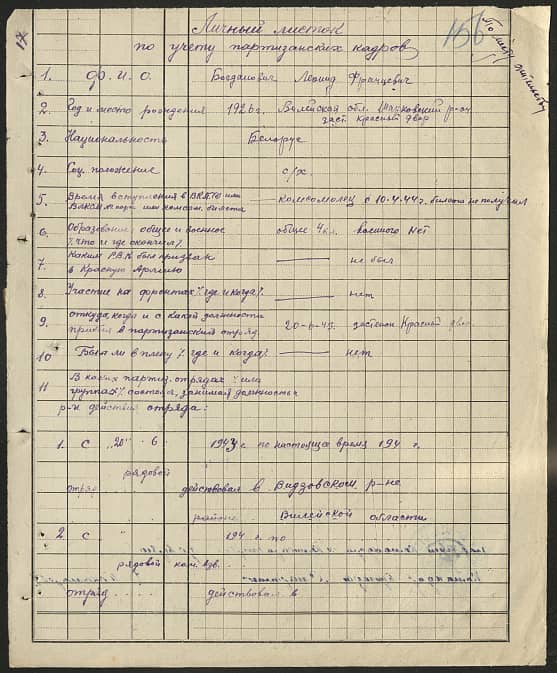 17
156
По месту жительству
Личный листок
по учету партизанских кадров
1. Ф. И. О. Богданович Леонид Францевич
2. Год и место рождения 1926 г. Вилейская обл. Шарковский р-он
заст. Красный двор
3 Национальность Белорус
4 Соц. положение с/х.
5 Время вступления в ВКП(б) или комсомолец с 10.4.44 г. билета не получил
ВЛКСМ
6 Образование общее и военное общее 4 кл. военного нет
% что и где окончил %
7. Каким Р.В.К был призван не был
в Красную Армию
8 Участие на фронтах % где и когда %. нет
9 откуда, когда и с какой должности 20-6-43. застенок Красный двор
прибыл в партизанский отряд
10 Был ли в плену % где и когда % нет
11 В каких партиз. отрядах % или
группах % состоял, занимал должность
р-н действия отряда:
1. С „20" 6 1943 г по настоящее время 194 г.
рядовой
отряд действовал в Видзовском р-не
районе Вилейской области
2 С " 194 г. по
рядовой ком. взв. .
отряд . . . . действовал в